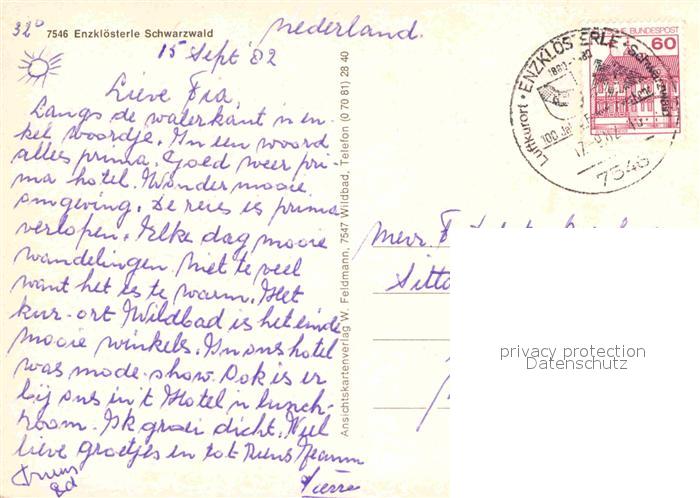 32°
7546 Enzklösterle Schwarzwald
nederland.
15 Sept 82
Lieve Fia,
Langs de waterkant 'n en-
kel woordje. In een woord
alles prima. Goed weer pri-
ma hotel. Wonder mooie
omgeving. De reis is prima
verlopen. Elke dag mooie
wandelingen. Niet te veel
want het is te warm. Het
kur-ort Wildbad is het einde
mooie winkels. In ons hotel
was mode-show. Ook is er
bij ons in 't Hotel 'n lunch-
room. Ik groei dicht. Veel
lieve groetjes en tot ziens
Pierre
Ansichtskartenverlag W. Feldmann, 7547 Wildbad, Telefon (0 70 81) 28 40
BUNDESPOST
60
Luftkurort · ENZKLÖSTERLE · Schwarzwald
7546
Mevr. F
Sitta
privacy protection
Datenschutz